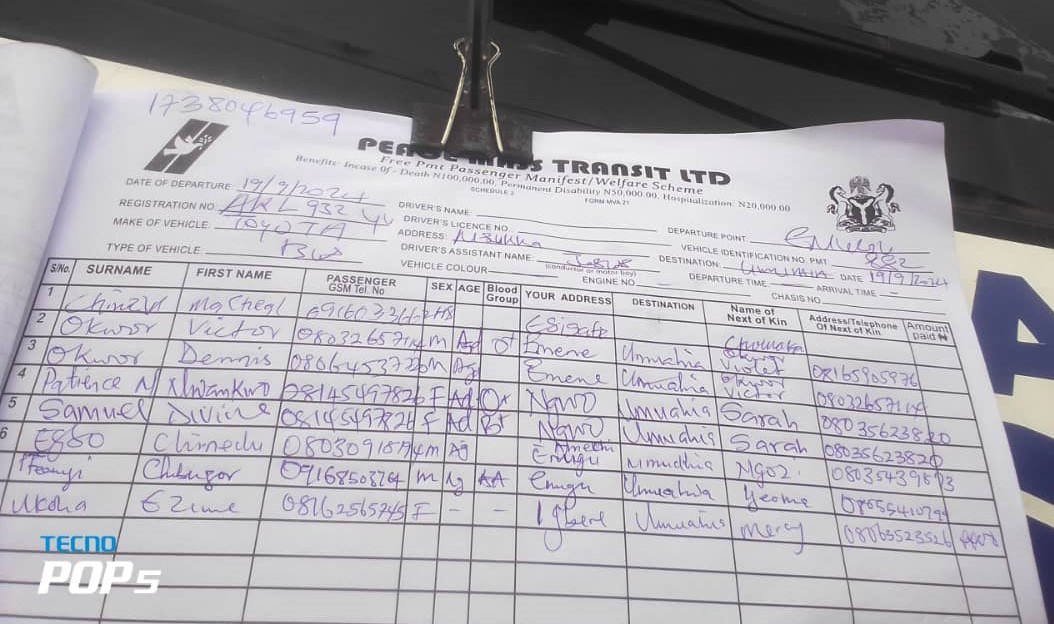 1738046959
PEACE MASS TRANSIT LTD
Free Pmt Passenger Manifest/Welfare Scheme
Benefits: Incase Of - Death N100,000.00, Permanent Disability N50,000.00, Hospitalization: N20,000.00
SCHEDULE 2 FORM MVA 21
DATE OF DEPARTURE: 19/9/2024 DRIVER'S NAME: DEPARTURE POINT
REGISTRATION NO: 932 YY DRIVER'S LICENCE NO. VEHICLE IDENTIFICATION NO. PMT 882
MAKE OF VEHICLE: TOYOTA ADDRESS: NSUKKA DESTINATION: Umuahia DATE 19/9/2024
TYPE OF VEHICLE: Bus DRIVER'S ASSISTANT NAME: (conductor or motor boy) DEPARTURE TIME ARRIVAL TIME
VEHICLE COLOUR ENGINE NO CHASIS NO.
S/No. SURNAME FIRST NAME PASSENGER GSM Tel. No SEX AGE Blood Group YOUR ADDRESS DESTINATION Name of Next of Kin Address/Telephone Of Next of Kin Amount paid ₦
1
2 Okwor Victor 08032657114 m Ad O+ Emene Umuahia Violet 08165905976
3 Okwor Dennis 08066453722 m Emene Umuahia Okwor Victor 08032657114
4 Patience N Nwankwo 08145497826 F Ad O+ Ngwo Umuahia Sarah 08035623820
5 Samuel Divine 08145497826 F Ad B+ Ngwo Umuahia Sarah 08035623820
6 Egbo Chinedu m Enugu Umuahia Ngozi
Ifeanyi 09168503764 m AA Enugu Umuahia
Ukoha Ezinne 08162565745 F - - Igbere Umuahia mercy 08063523526
TECNO
POP5